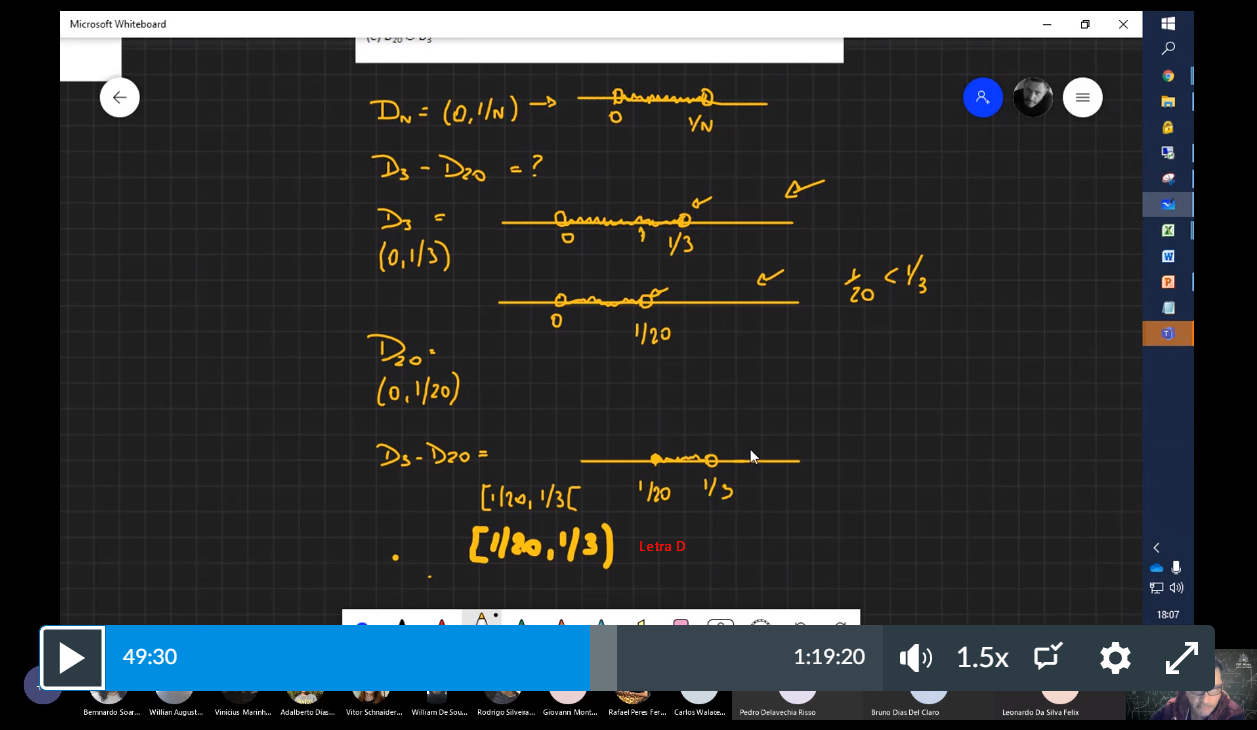 Microsoft Whiteboard
D_N = (0, 1/N) →
0 1/N
D_3 - D_20 = ?
D_3 =
(0, 1/3)
0 1/3
1/20 < 1/3
0 1/20
D_20 =
(0, 1/20)
D_3 - D_20 =
1/20 1/3
[1/20, 1/3[
[1/20, 1/3) Letra D
18:07
49:30 1:19:20 1.5x
Bernnardo Soar... Willian August... Vinicius Marinh... Adalberto Dias... Vitor Schnaider... William De Sou... Rodrigo Silveira... Giovanni Mont... Rafael Peres Fer... Carlos Walace... Pedro Delavechia Risso Bruno Dias Del Claro Leonardo Da Silva Felix